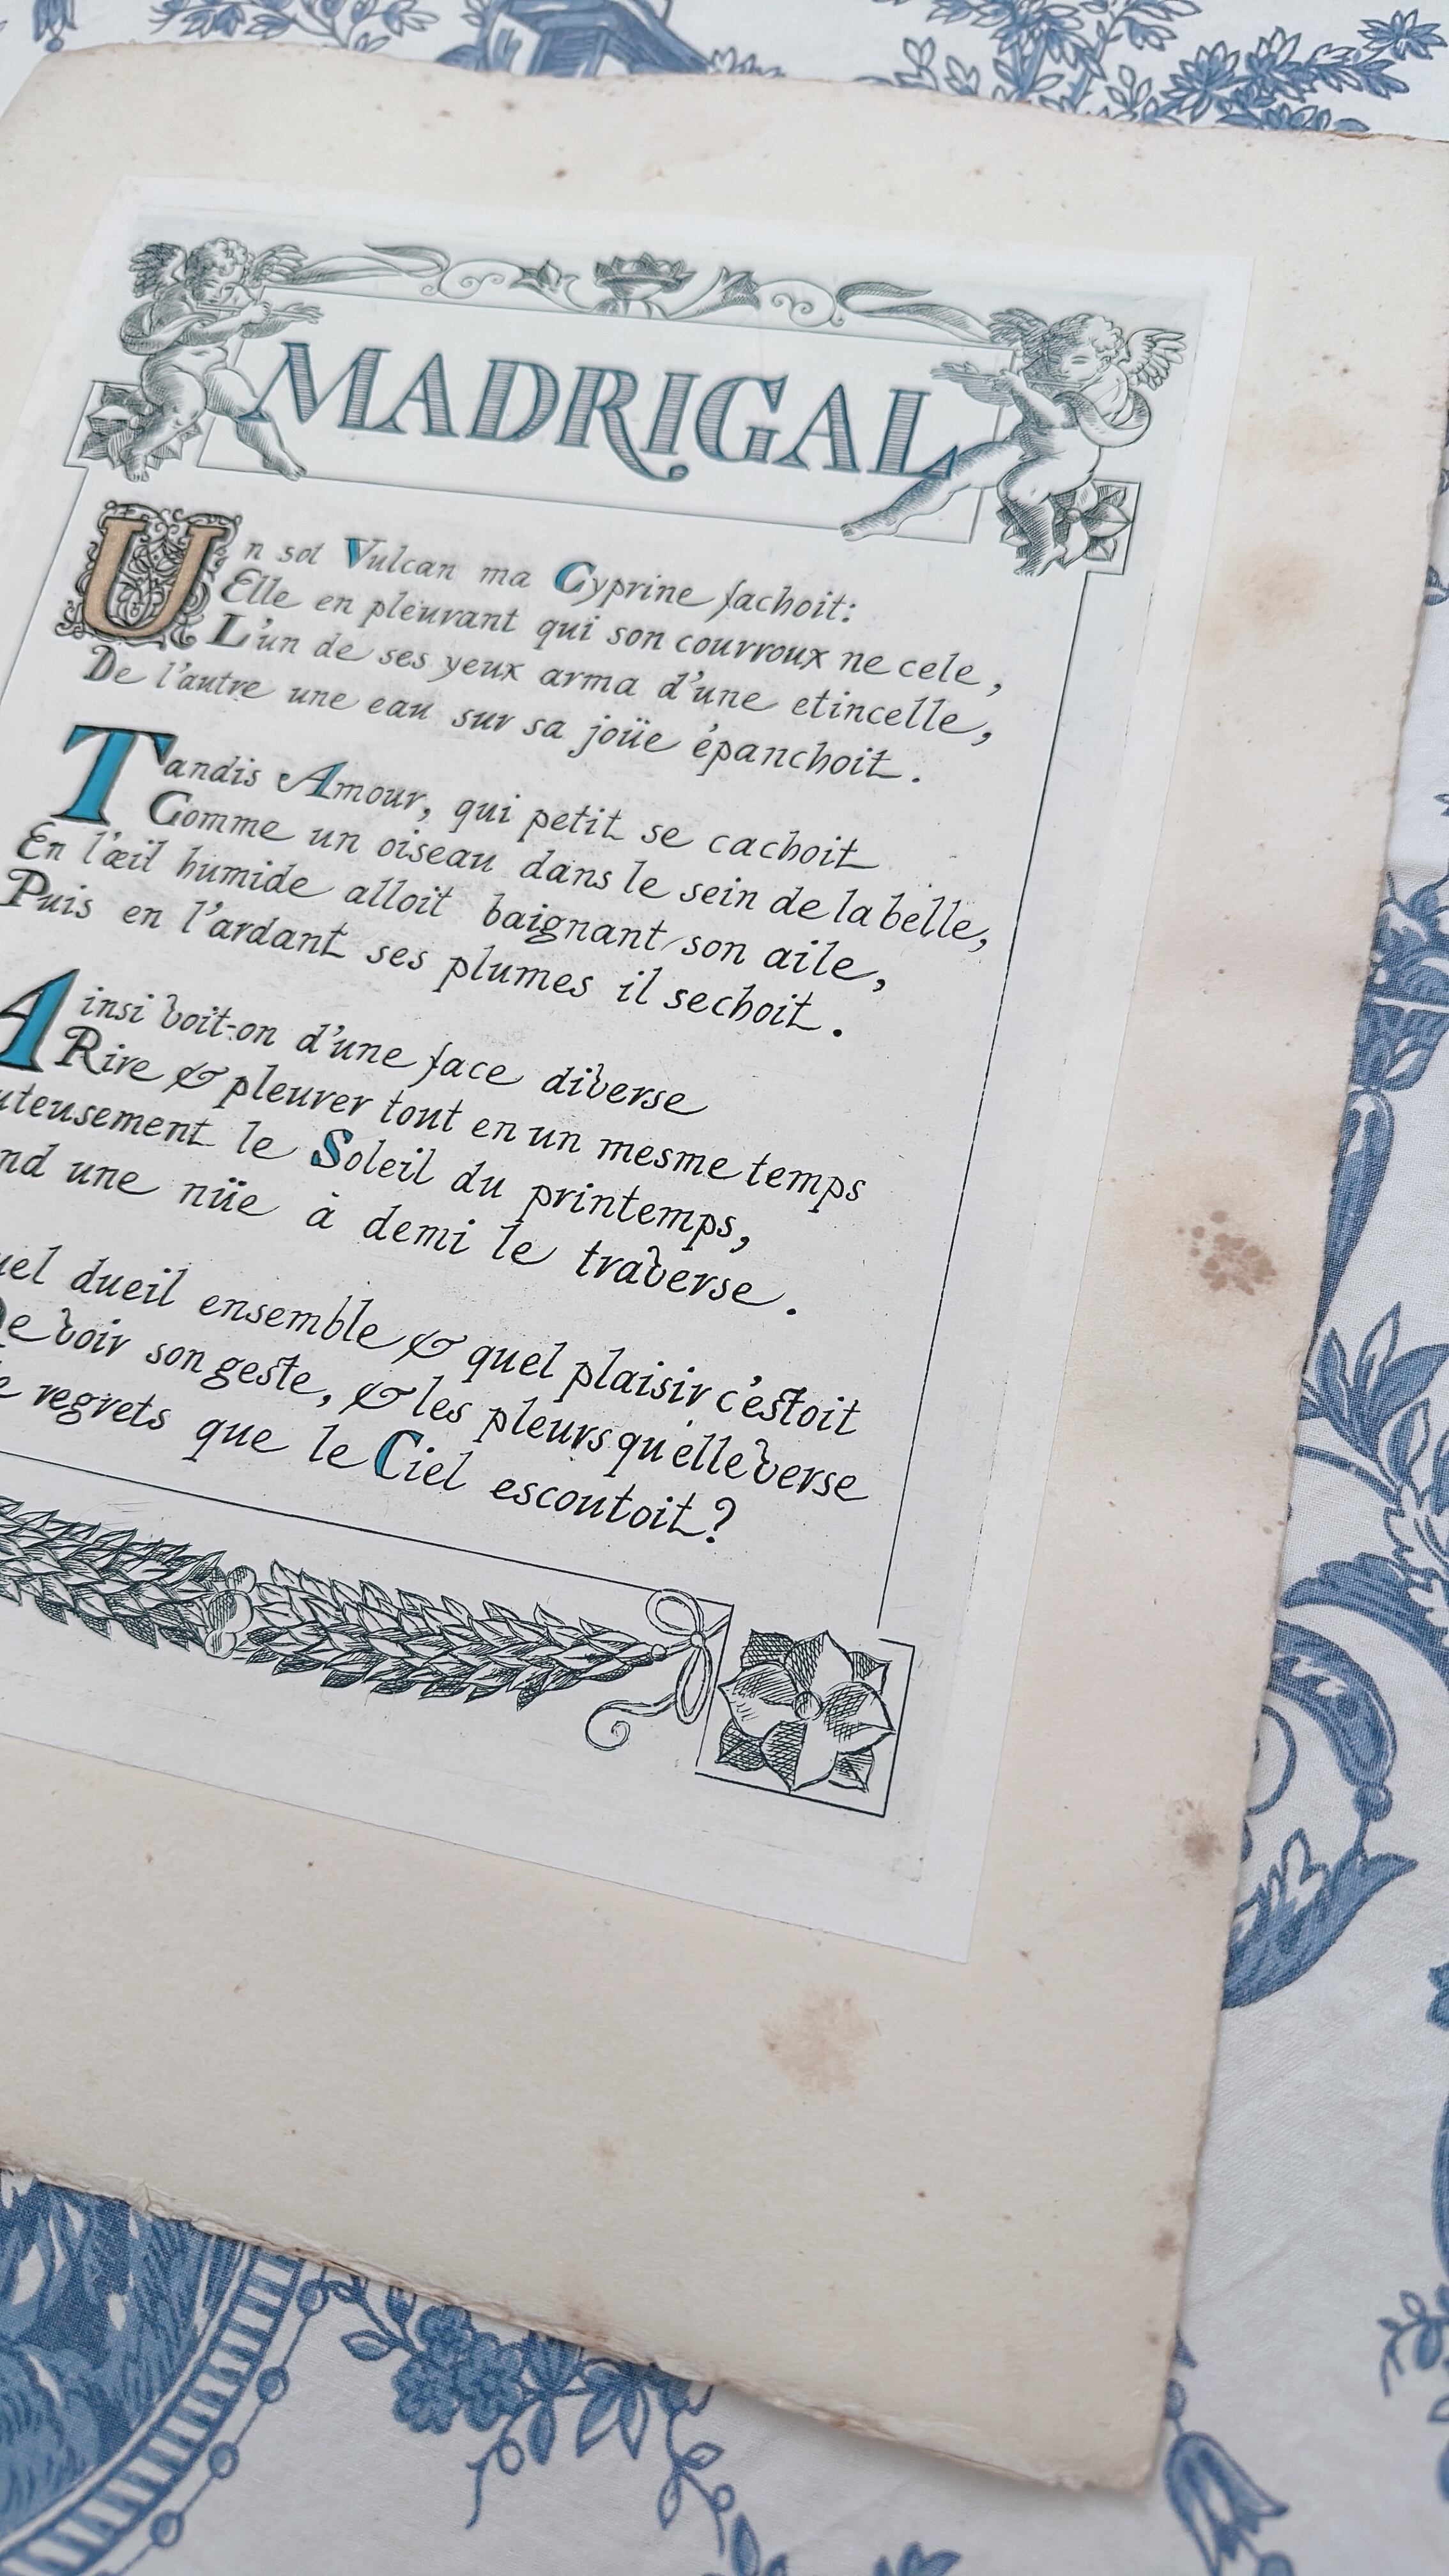 MADRIGAL
Un sot Vulcan ma Cyprine fachoit:
Elle en pleurant qui son courroux ne cele,
L'un de ses yeux arma d'une etincelle,
De l'autre une eau sur sa joüe épanchoit.
Tandis Amour, qui petit se cachoit
Comme un oiseau dans le sein de la belle,
En l'œil humide alloit baignant son aile,
Puis en l'ardant ses plumes il sechoit.
Ainsi voit-on d'une face diverse
Rire & pleurer tout en un mesme temps
le Soleil du printemps,
une nüe à demi le traverse.
dueil ensemble & quel plaisir c'estoit
De voir son geste, & les pleurs qu'elle verse
regrets que le Ciel escoutoit?